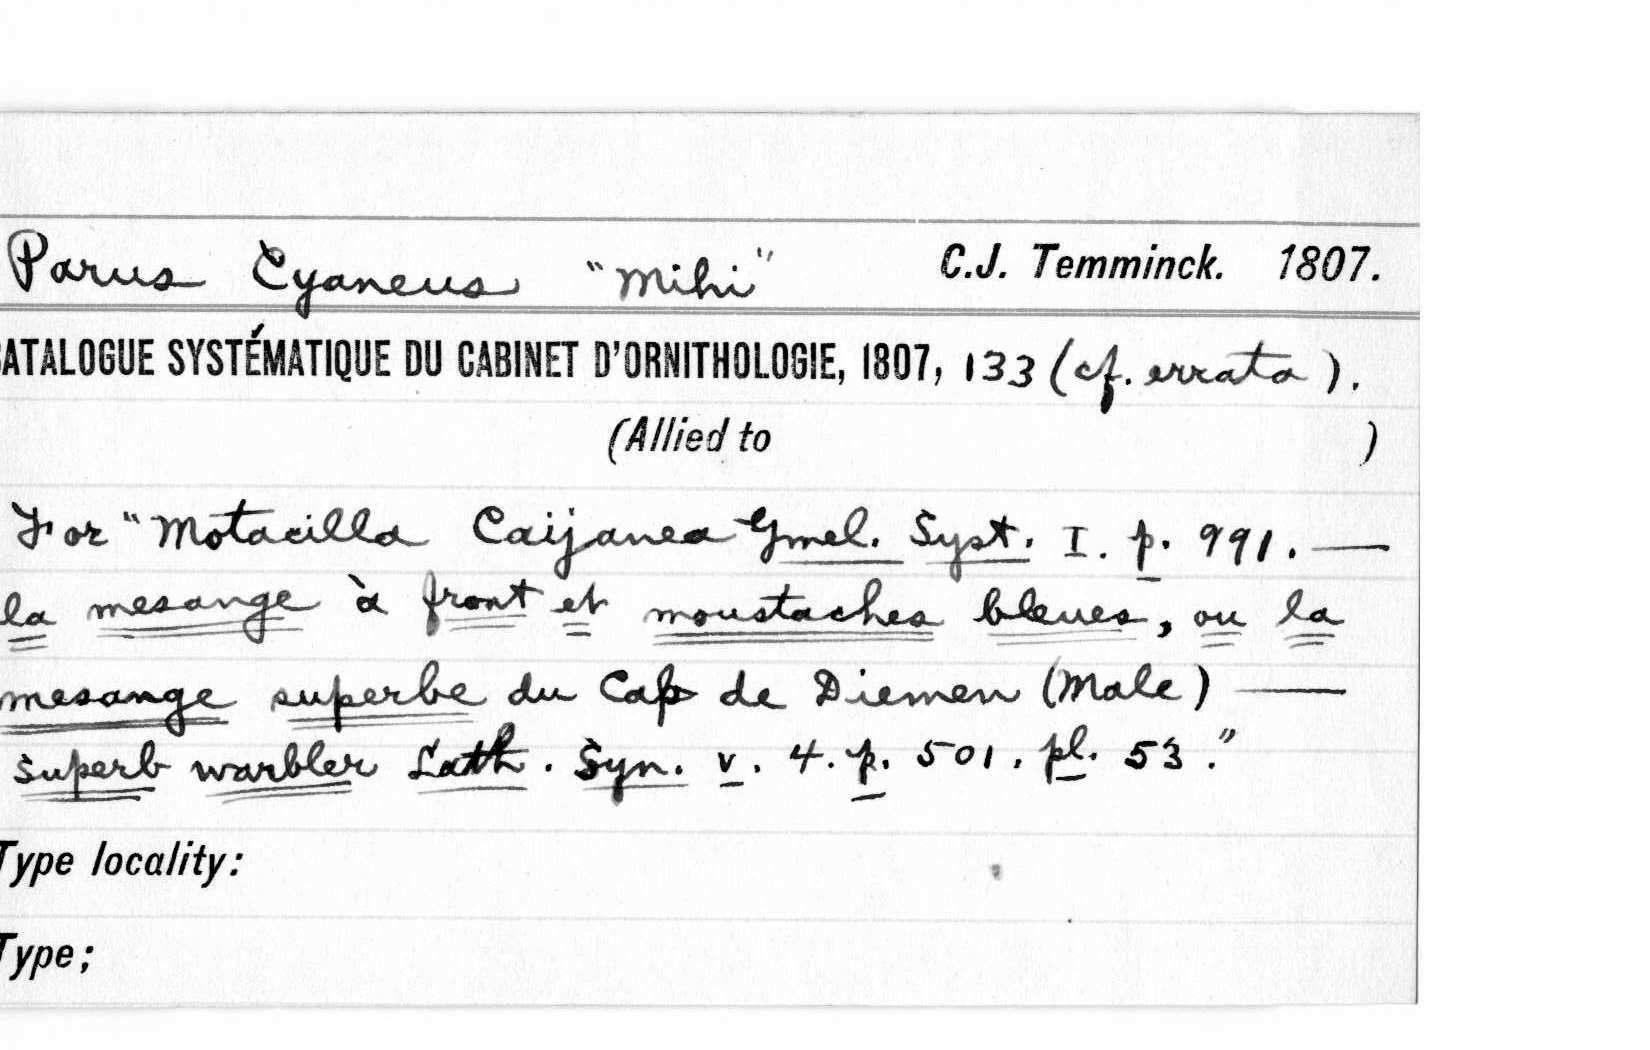 Parus Cyaneus "Mihi" C.J. Temminck. 1807.
CATALOGUE SYSTÉMATIQUE DU CABINET D'ORNITHOLOGIE, 1807, 133 (cf. errata).
(Allied to )
For "Motacilla Caijanea Gmel. Syst. I. p. 991. —
la mesange à front et moustaches bleues, ou la
mesange superbe du Cap de Diemen (Male) —
Superb warbler Lath. Syn. v. 4. p. 501. pl. 53."
Type locality:
Type;